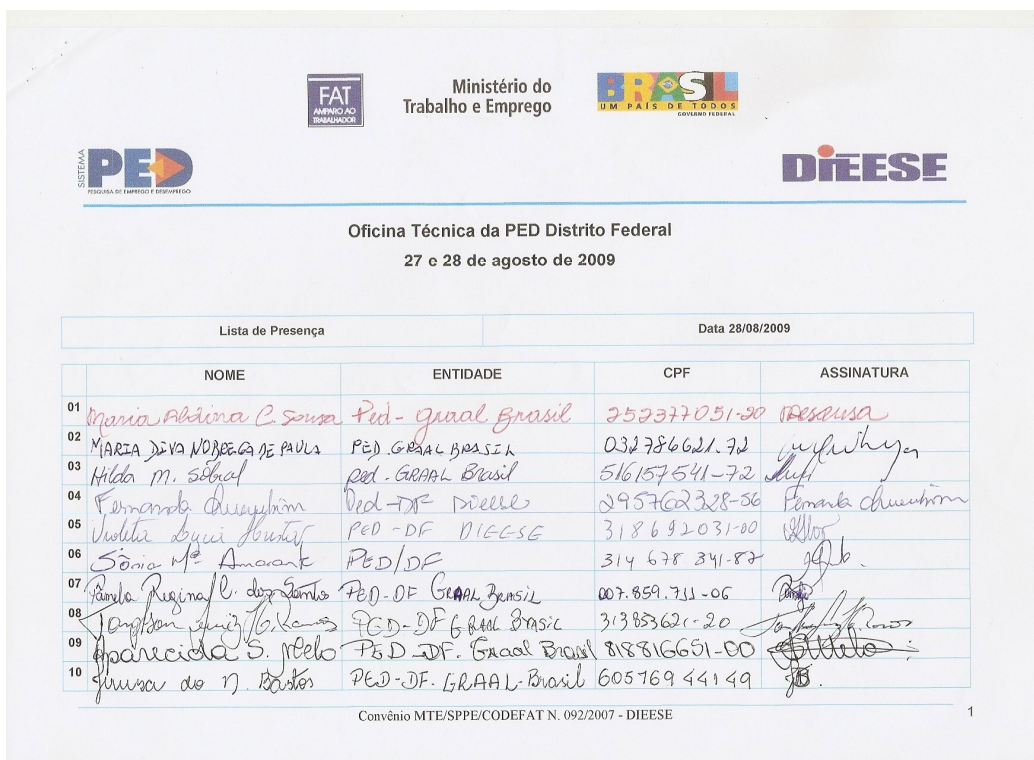 FAT
AMPARO AO
TRABALHADOR
Ministério do
Trabalho e Emprego
BRASIL
UM PAÍS DE TODOS
GOVERNO FEDERAL
SISTEMA
PED
PESQUISA DE EMPREGO E DESEMPREGO
DIEESE
Oficina Técnica da PED Distrito Federal
27 e 28 de agosto de 2009
Lista de Presença Data 28/08/2009
NOME ENTIDADE CPF ASSINATURA
01 Maria Aldina C. Souza Ped - Graal Brasil 252377051-20
02 MARIA DIVA NOBREGA DE PAULA PED GRAAL BRASIL 032786621.72
03 Hilda M. Sobral ped. GRAAL Brasil 516157541-72
04 Fernanda Ped-DF Dieese 295762328-56 Fernanda
05 Violeta PED-DF DIEESE 318692031-00
06 Sônia Mª Amarante PED/DF 314 678 341-87
07 Pamela Regina C. dos Santos PED-DF GRAAL BRASIL 007.859.711-06
08 Ramos PED-DF GRAAL BRASIL 313853621-20
09 Aparecida S. Melo PED-DF. Graal Brasil 818816651-00
10 do N. Bastos PED-DF. GRAAL-Brasil 60576944149
Convênio MTE/SPPE/CODEFAT N. 092/2007 - DIEESE
1